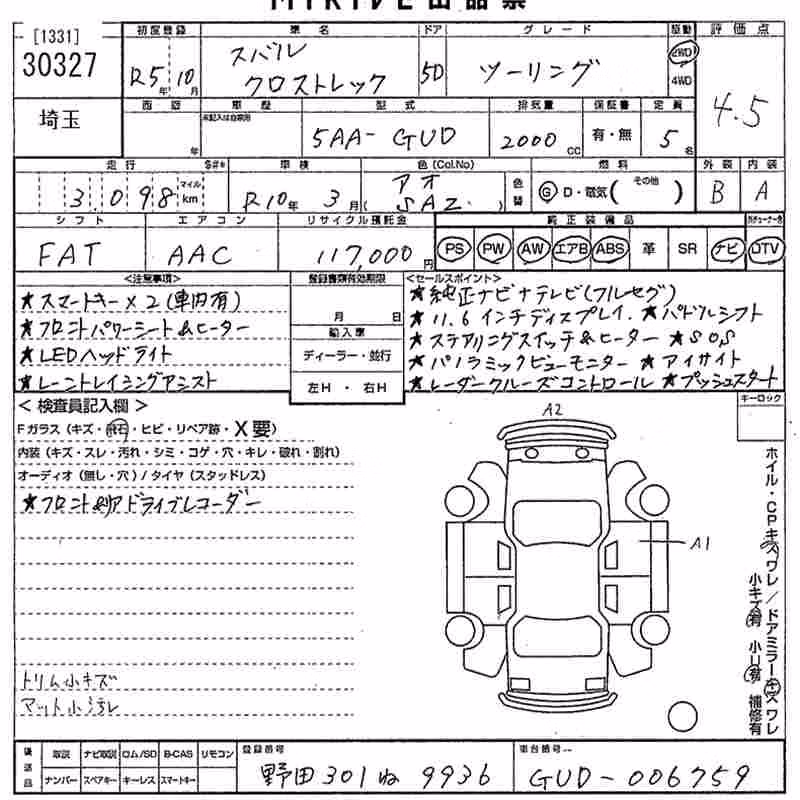 [1331]
30327
埼玉
初度登録 車名 ドア グレード 駆動 評価点
R5年10月 スバル クロストレック 5D ツーリング 2WD 4WD 4.5
車歴 型式 排気量 保証書 定員
年 未記入は自家用 5AA-GUD 2000cc 有・無 5名
走行 $#* 車検 色(Col.No) 色替 燃料 外装 内装
3,098 マイル km R10年3月 アオ (SAZ) G D・電気(その他) B A
シフト エアコン リサイクル預託金 純正装備品
FAT AAC 117,000円 PS PW AW エアB ABS 革 SR ナビ TV
<注意事項> 登録書類有効期限 <セールスポイント>
★スマートキー×2(車内有)
★フロントパワーシート&ヒーター
★LEDヘッドライト
★レーントレイシングアシスト
月 日
輸入車
ディーラー・並行
左H・右H
★純正ナビナテレビ(フルセグ)
★11.6インチディスプレイ. ★パドルシフト
★ステアリングスイッチ&ヒーター ★SOS
★パノラミックビューモニター ★アイサイト
★レーダークルーズコントロール ★プッシュスタート
<検査員記入欄>
キーロック
Fガラス(キズ・飛石・ヒビ・リペア跡・X要)
内装(キズ・スレ・汚れ・シミ・コゲ・穴・キレ・破れ・割れ)
オーディオ(無し・穴)/タイヤ(スタッドレス)
★フロント&リアドライブレコーダー
A2
A1
ホイル・CPキズワレ/ドアミラーキズワレ
小キズ有 小U有 補修有
トリム小キズ
マット小汚レ
後送品 取説 ナビ取説 ロム/SD B-CAS リモコン
ナンバー スペアキー キーレス スマートキー
登録番号 野田301ね9936
車台番号 GUD-006759